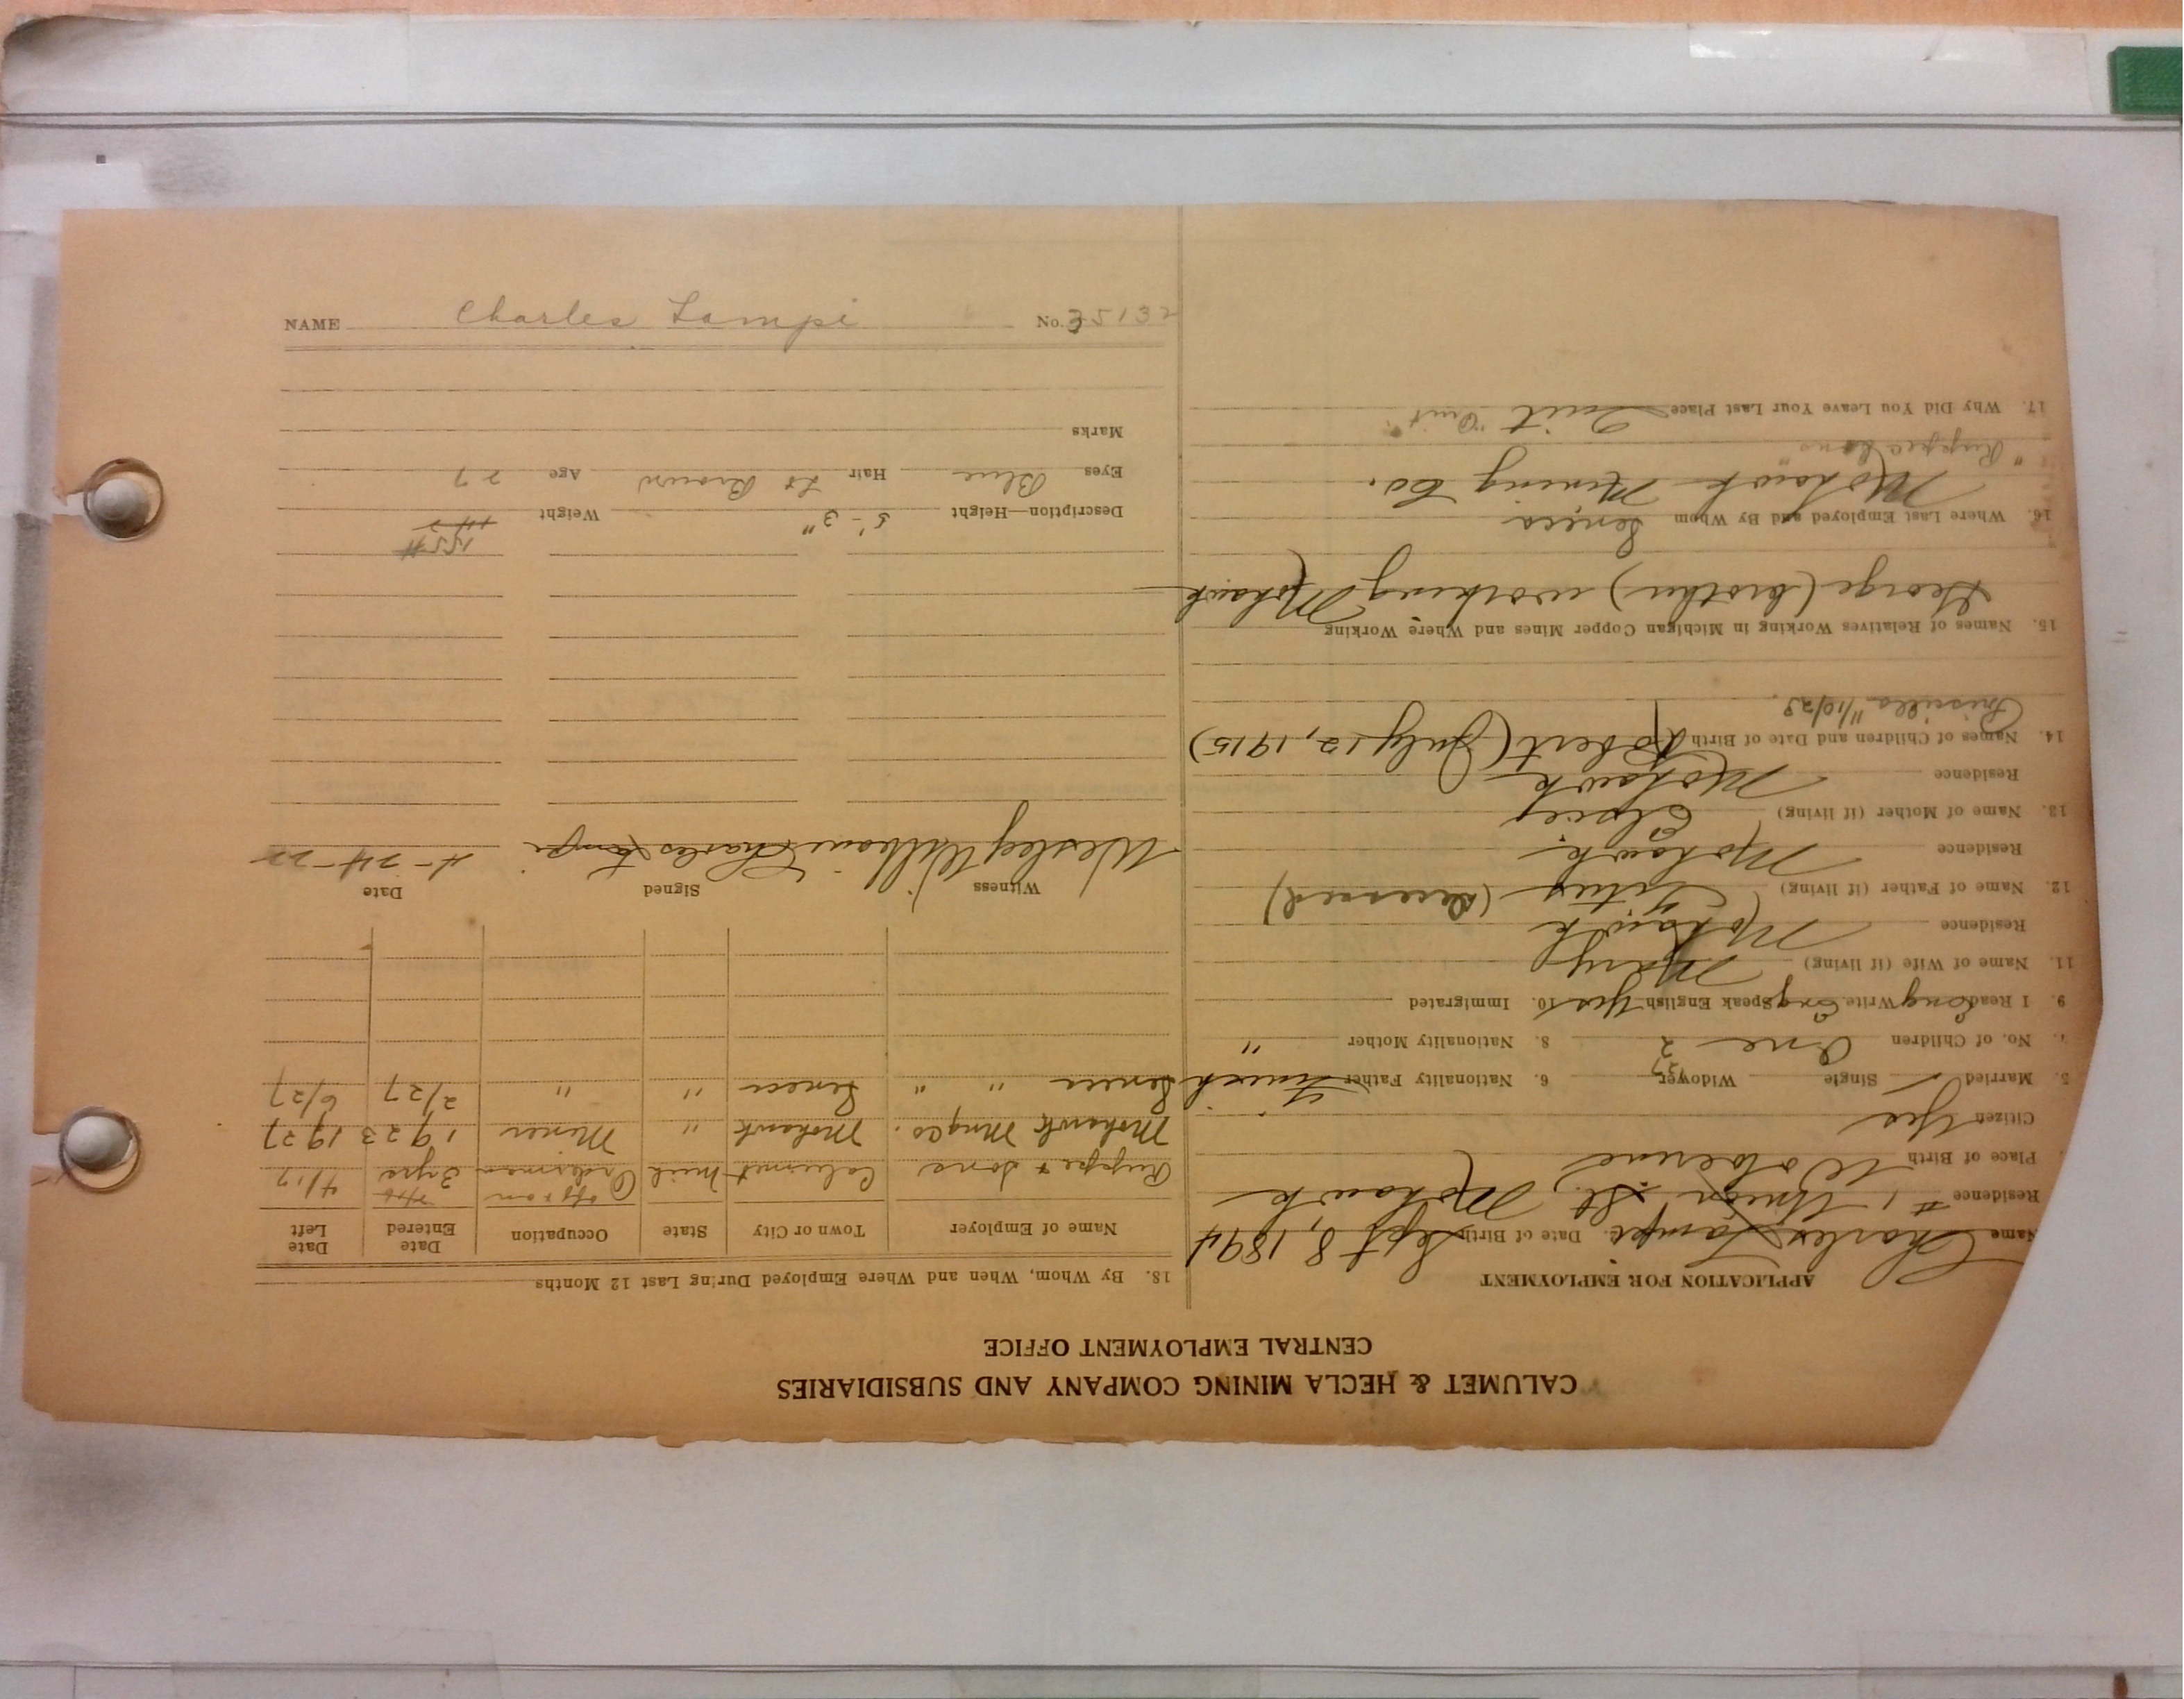 CALUMET & HECLA MINING COMPANY AND SUBSIDIARIES
CENTRAL EMPLOYMENT OFFICE
APPLICATION FOR EMPLOYMENT
Name Charles Lampi 2. Date of Birth Sept 8, 1894
Residence #1 Union St., Mohawk
Place of Birth Wolverine
Citizen Yes
5. Married ✓ Single Widower 6. Nationality Father Finnish
7. No. of Children One 2 8. Nationality Mother "
9. I Read Eng Write Eng Speak English Yes 10. Immigrated
11. Name of Wife (if living) Mary
Residence Mohawk
12. Name of Father (if living) (deceased)
Residence Mohawk
13. Name of Mother (if living)
Residence Mohawk
14. Names of Children and Date of Birth Robert (July 12, 1915)
Priscilla 11/10/23.
15. Names of Relatives Working in Michigan Copper Mines and Where Working
George (brother) working Mohawk
16. Where Last Employed and By Whom Seneca
Mohawk Mining Co.
" Ruppe Sons "
17. Why Did You Leave Your Last Place Quit "Quit"
18. By Whom, When and Where Employed During Last 12 Months
Name of Employer Town or City State Occupation Date Entered Date Left
Ruppe & Sons Calumet Mich 3 yrs 4/17
Mohawk Mng Co. Mohawk " Miner 1923 1927
Seneca " " Seneca " " 2/27 6/27
Witness Signed Date
Wesley Williams Charles Lampi 4-24-22
155#
Description—Height 5'-3" Weight
Eyes Blue Hair Lt Brown Age 27
Marks
NAME Charles Lampi No. 35132